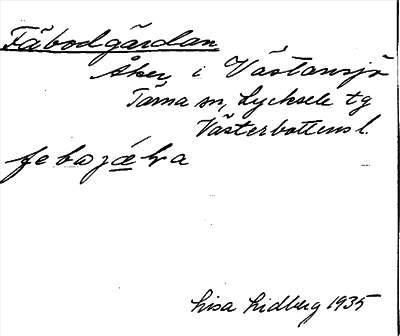 Fäbodgärdan
Åker i Västansjö
Tärna sn, Lycksele tg
Västerbottens l.
Lisa Lidberg 1935